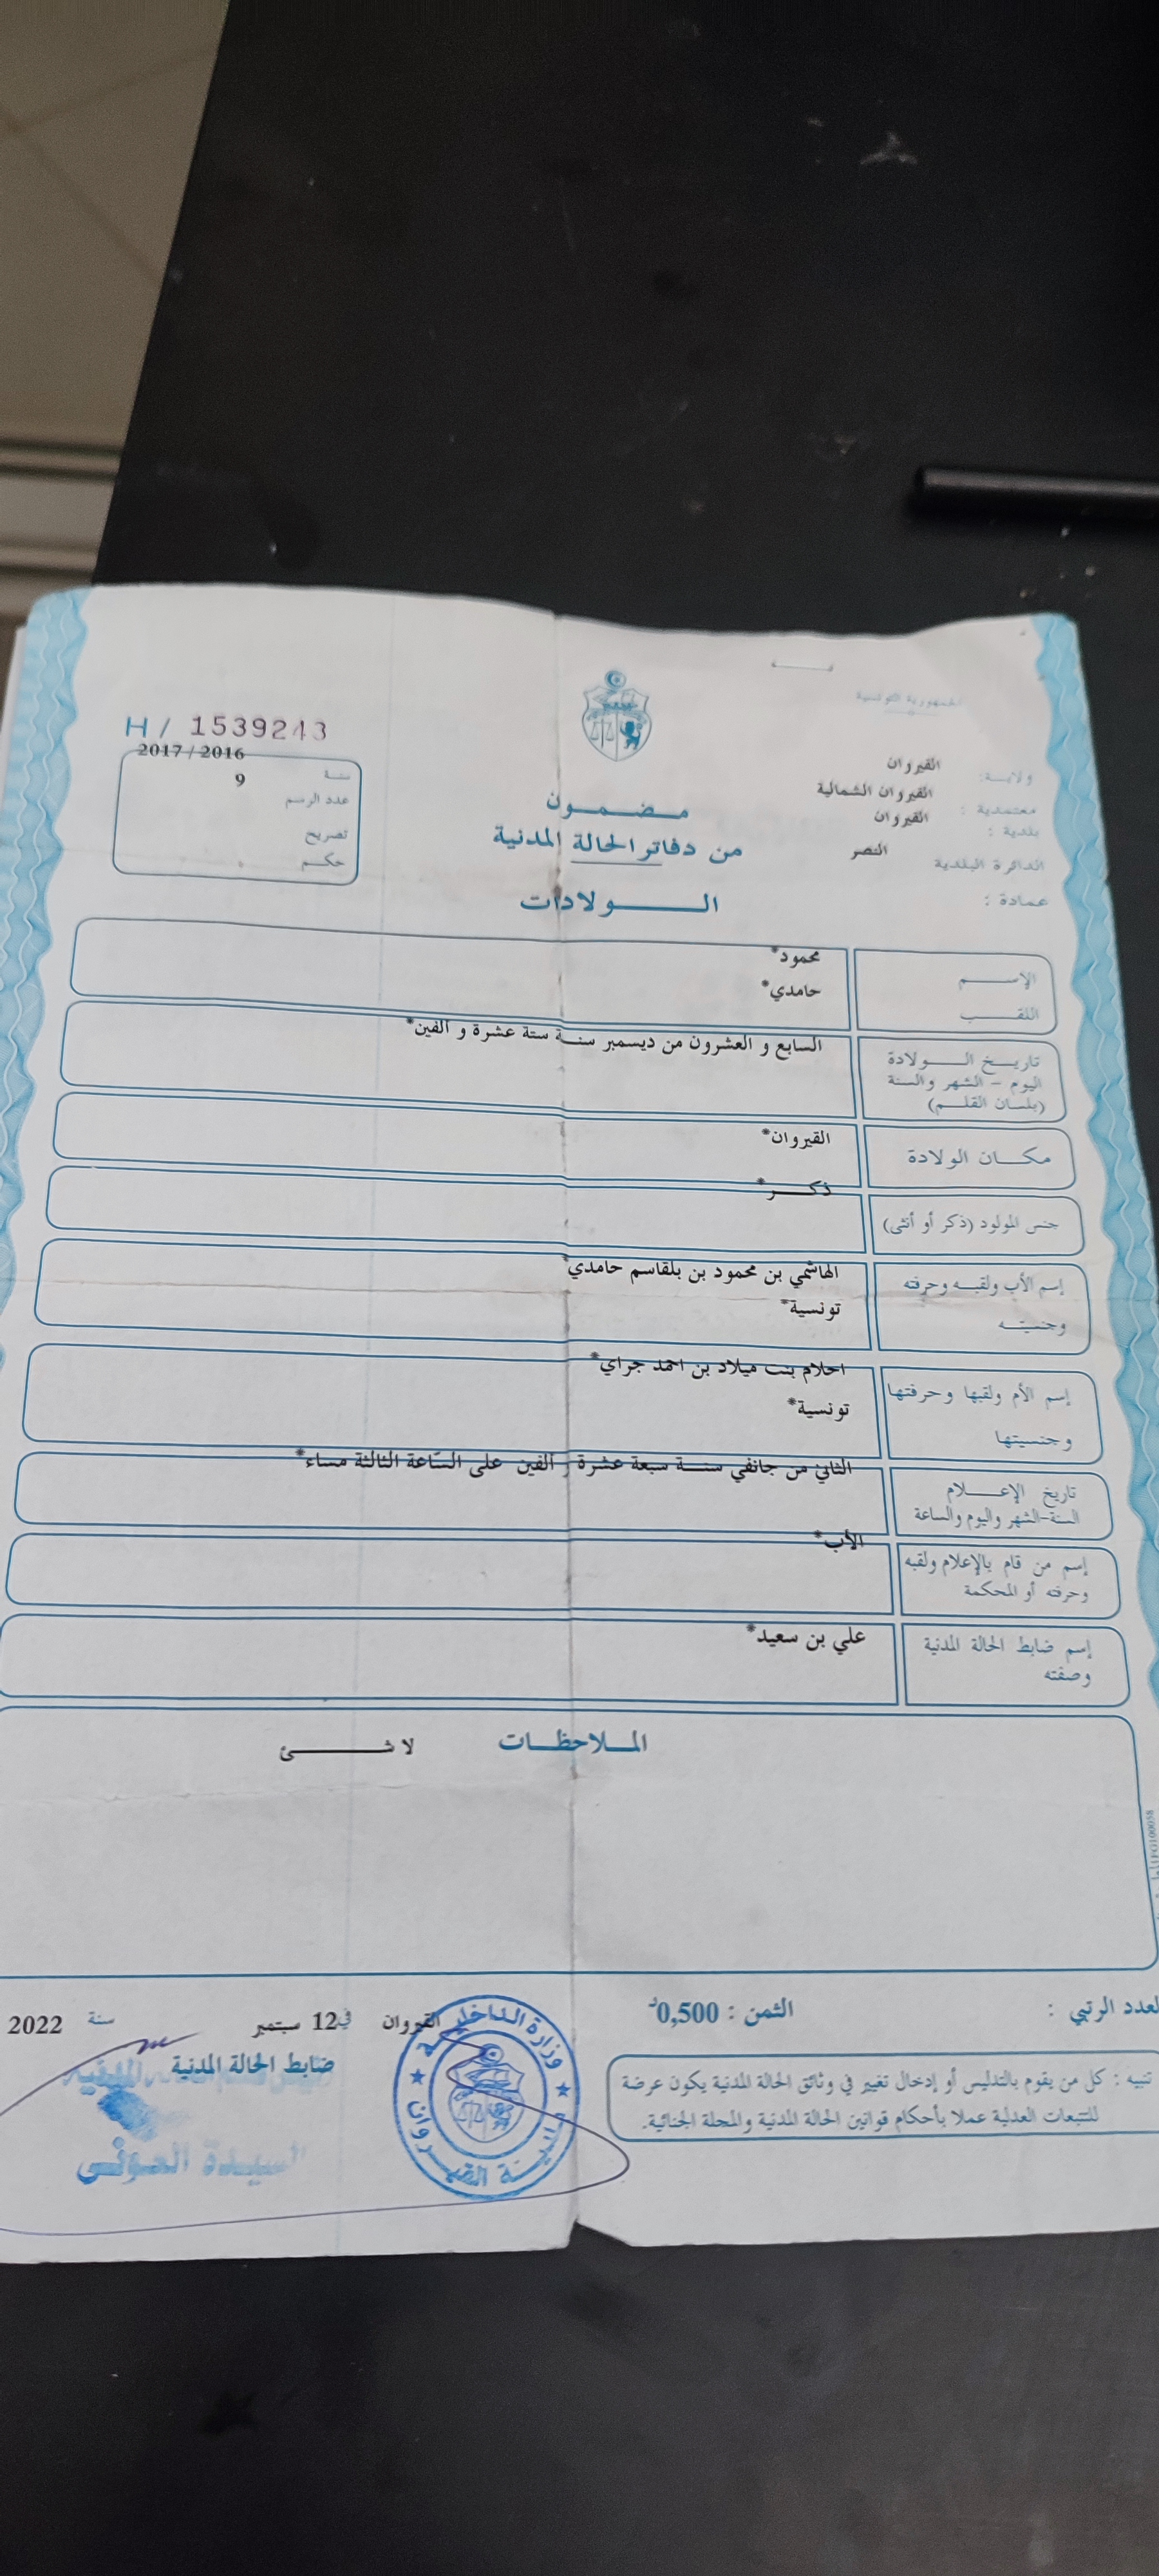 الجمهورية التونسية
ولايــة: القيروان
معتمدية : القيروان الشمالية
بلدية : القيروان
الدائرة البلدية النصر
عمادة :
H / 1539243
سنة 2017 / 2016
عدد الرسم 9
تصريح
حكم
مضمون
من دفاتر الحالة المدنية
الولادات
الإسم محمود*
اللقب حامدي*
تاريخ الولادة السابع و العشرون من ديسمبر سنة ستة عشرة و الفين*
اليوم - الشهر والسنة
(بلسان القلم)
مكان الولادة القيروان*
جنس المولود (ذكر أو أنثى) ذكر*
إسم الأب ولقبه وحرفته الهاشمي بن محمود بن بلقاسم حامدي*
وجنسيته تونسية*
إسم الأم ولقبها وحرفتها احلام بنت ميلاد بن احمد جراي*
وجنسيتها تونسية*
تاريخ الإعلام الثاني من جانفي سنة سبعة عشرة و الفين على الساعة الثالثة مساء*
السنة-الشهر واليوم والساعة
إسم من قام بالإعلام ولقبه الأب*
وحرفته أو المحكمة
إسم ضابط الحالة المدنية علي بن سعيد*
وصفته
الملاحظات لا شئ
العدد الرتبي :
الثمن : 0,500د
القيروان في 12 سبتمبر سنة 2022
ضابط الحالة المدنية
تنبيه : كل من يقوم بالتدليس أو إدخال تغيير في وثائق الحالة المدنية يكون عرضة
للتتبعات العدلية عملا بأحكام قوانين الحالة المدنية والمجلة الجنائية.
وزارة الداخلية
القيروان